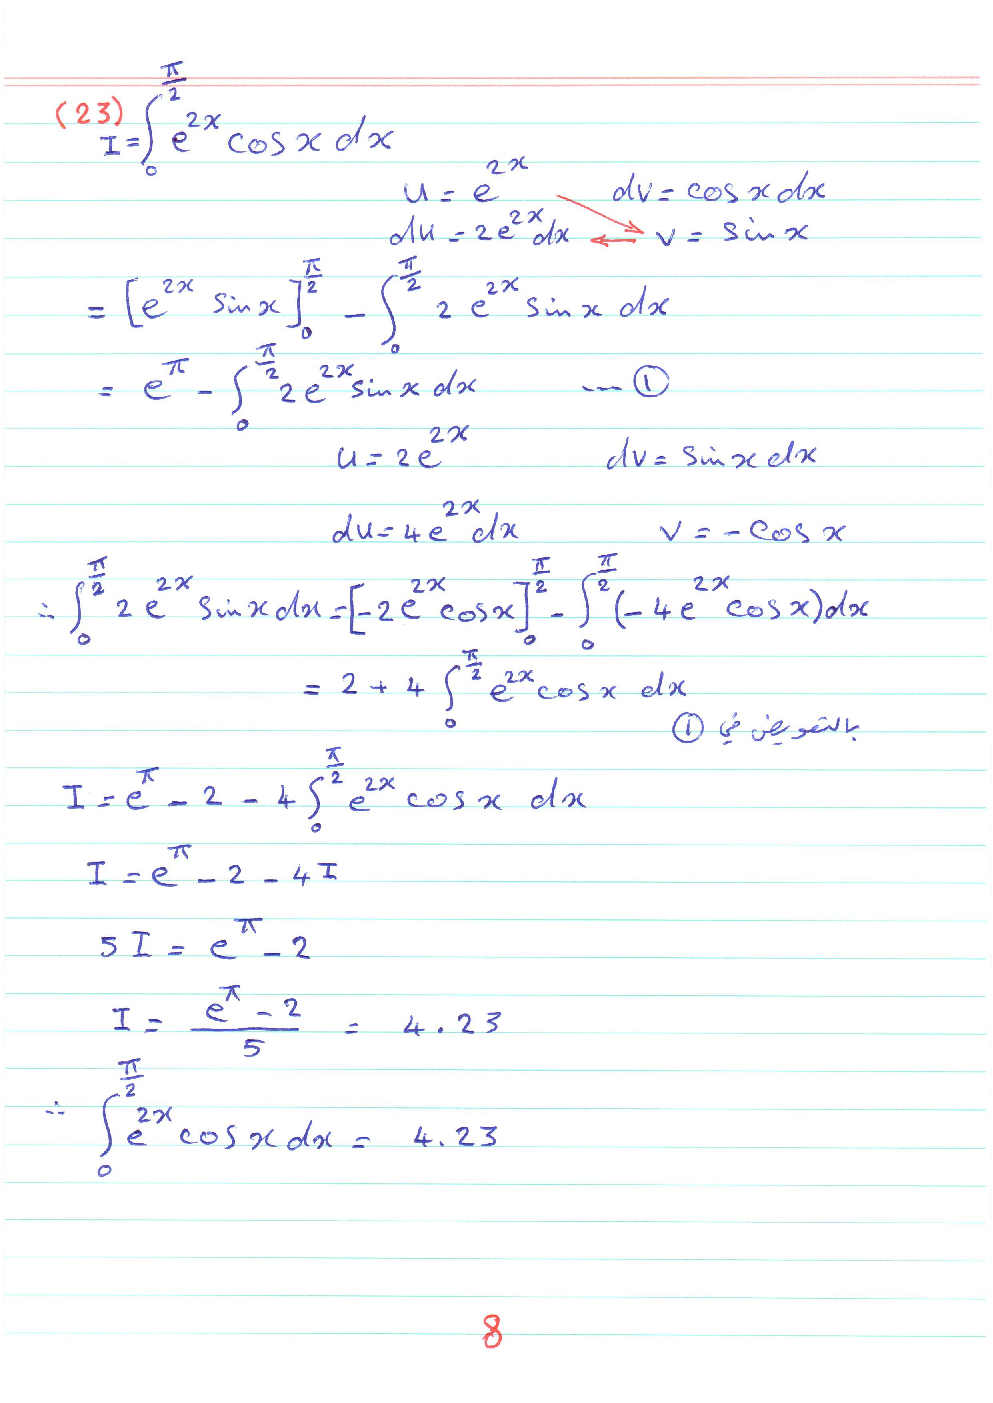 (23) I = ∫₀^{π/2} e^{2x} cos x dx
u = e^{2x} dv = cos x dx
du = 2e^{2x} dx v = sin x
= [e^{2x} sin x]₀^{π/2} - ∫₀^{π/2} 2 e^{2x} sin x dx
= e^π - ∫₀^{π/2} 2 e^{2x} sin x dx --- ①
u = 2e^{2x} dv = sin x dx
du = 4e^{2x} dx v = - cos x
∴ ∫₀^{π/2} 2 e^{2x} sin x dx = [-2e^{2x} cos x]₀^{π/2} - ∫₀^{π/2} (-4e^{2x} cos x) dx
= 2 + 4 ∫₀^{π/2} e^{2x} cos x dx
بالتعويض في ①
I = e^π - 2 - 4 ∫₀^{π/2} e^{2x} cos x dx
I = e^π - 2 - 4I
5 I = e^π - 2
I = (e^π - 2)/5 = 4.23
∴ ∫₀^{π/2} e^{2x} cos x dx = 4.23
8